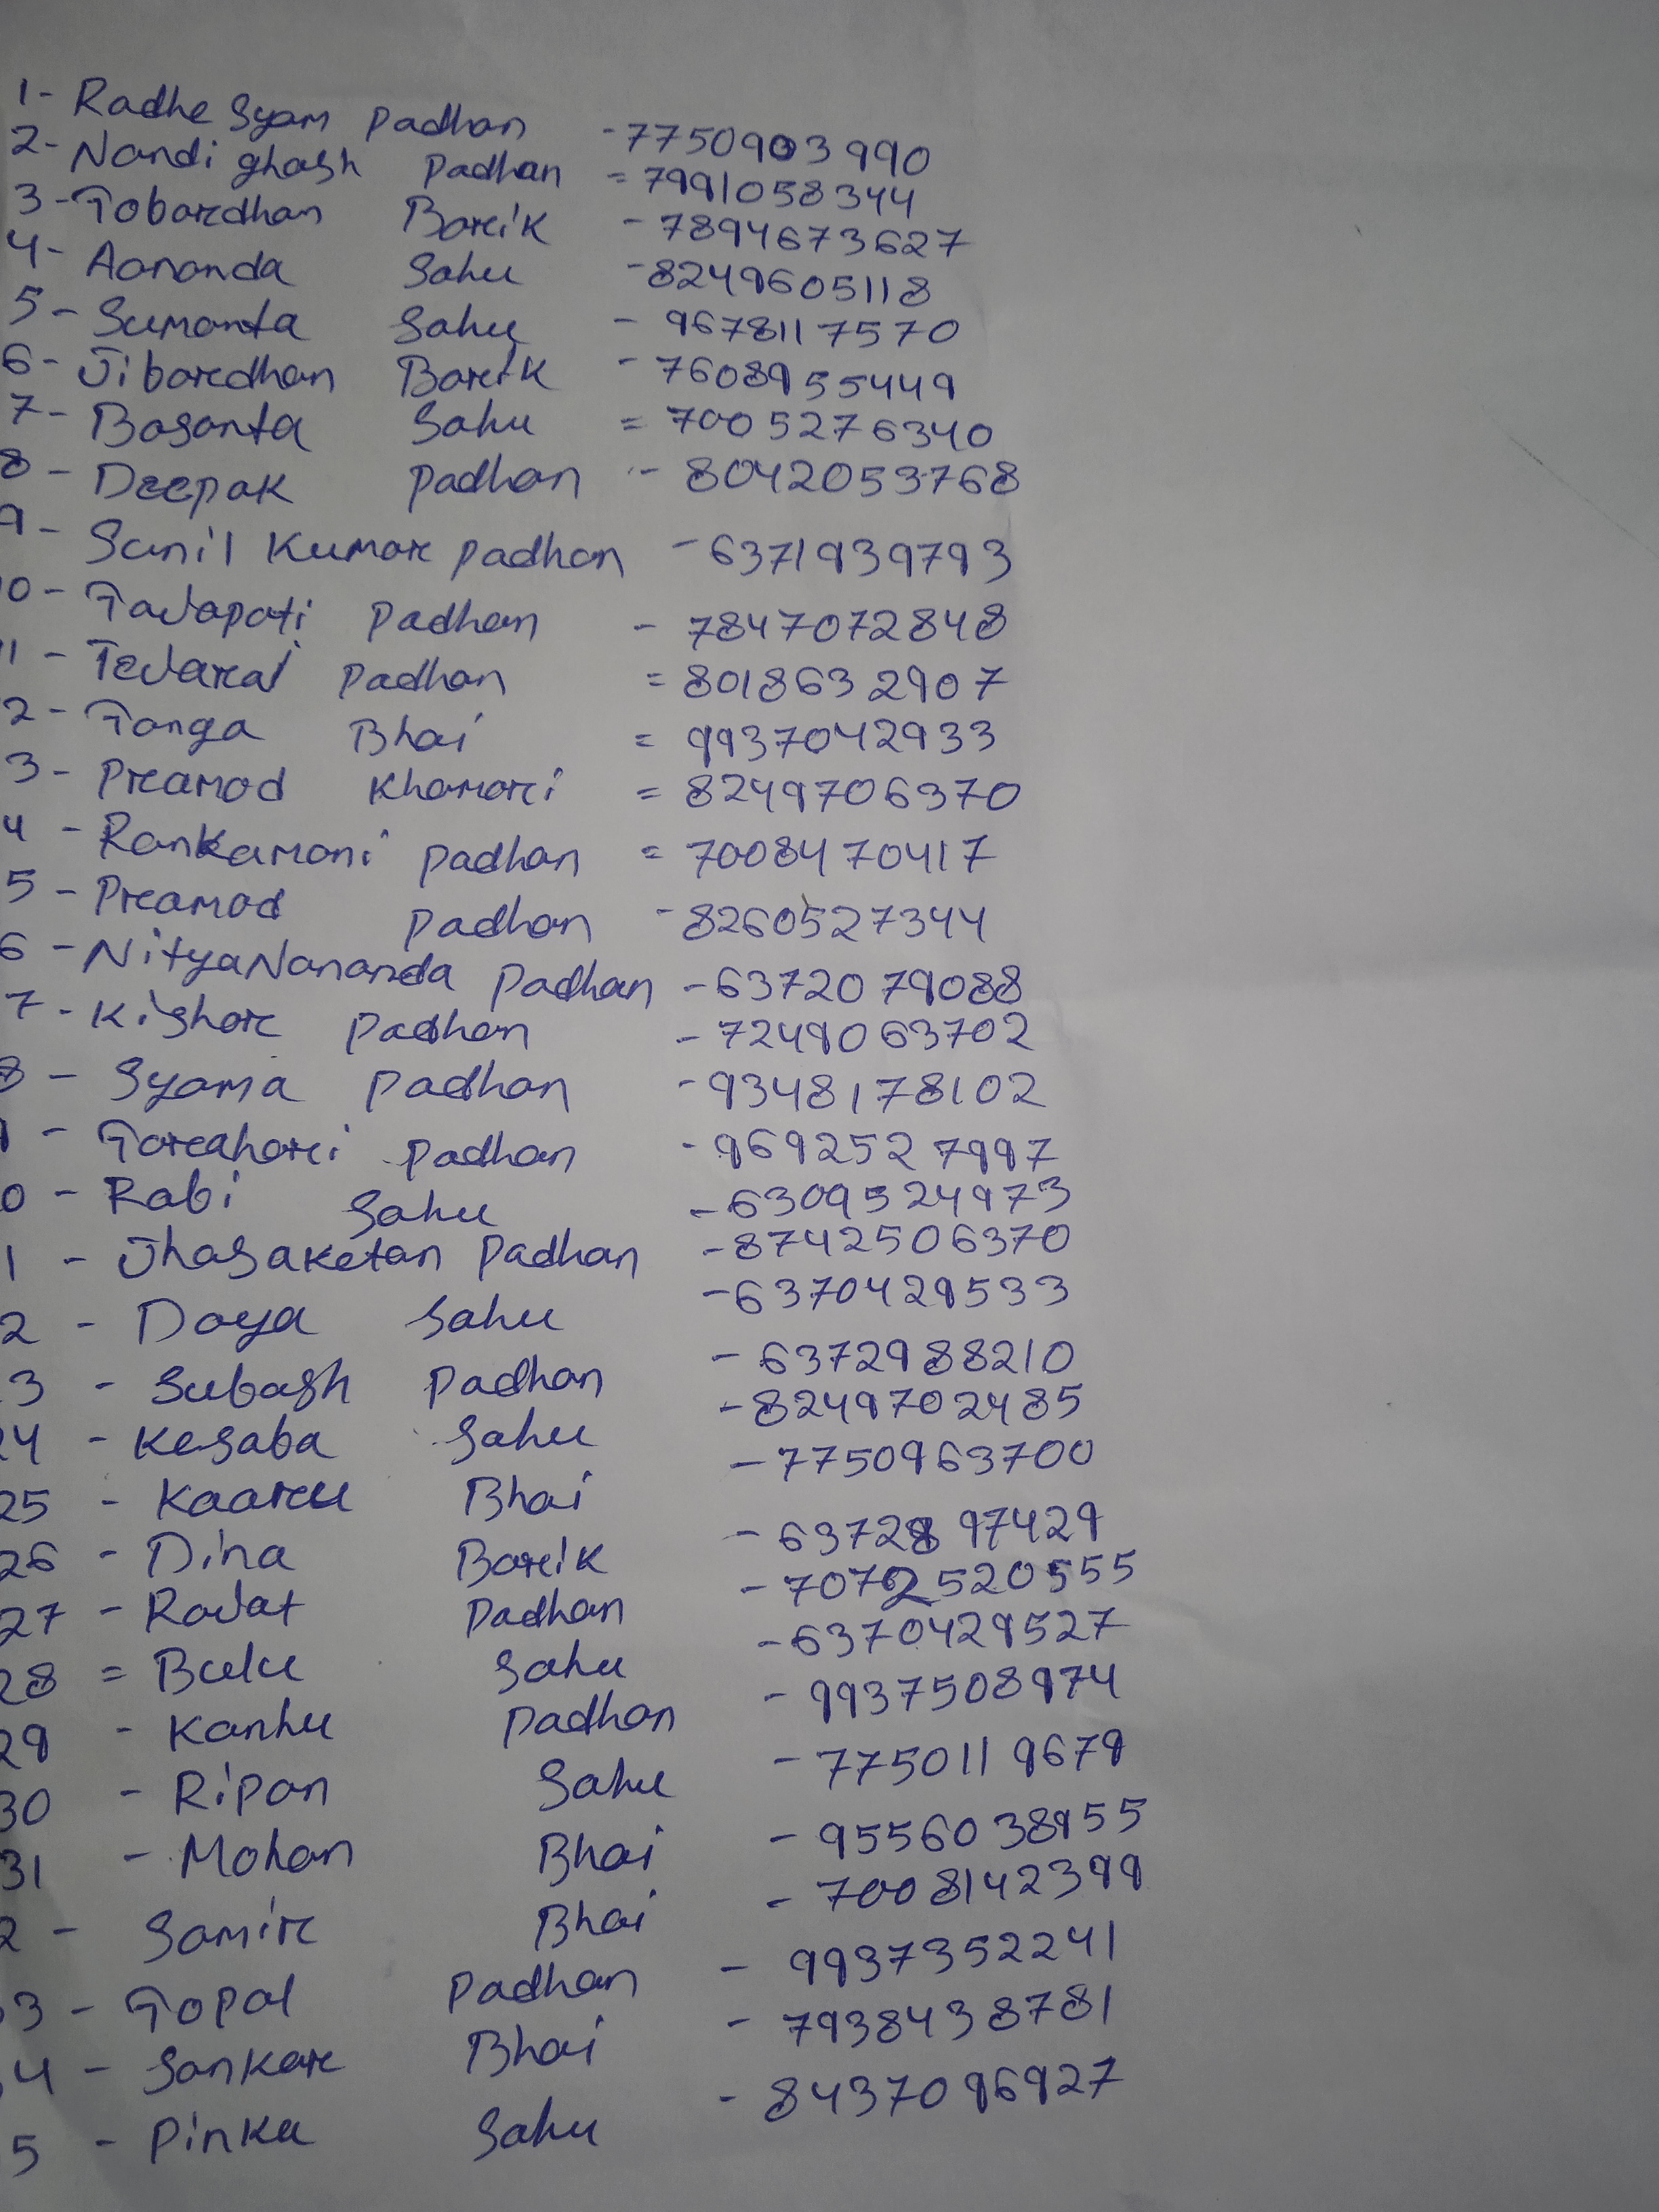 1- Radhe Syam Padhan - 7750903990
2- Nandi ghosh Padhan = 7991058344
3- Gobardhan Barik - 7894673627
4- Aananda Sahu - 8249605118
5- Sumanta Sahu - 9678117570
6- Jibardhan Barik - 7608955449
7- Basanta Sahu = 7005276340
8- Deepak Padhan - 8042053768
9- Sunil Kumar Padhan - 6371939793
0- Gajapati Padhan - 7847072848
1- Tejaraj Padhan = 8018632907
2- Ganga Bhai = 9937042933
3- Pramod Khamari = 8249706370
4- Rankamani Padhan = 7008470417
5- Pramod Padhan - 8260527344
6- NityaNananda Padhan - 6372079088
7- Kishor Padhan - 7249063702
8- Syama Padhan - 9348178102
9- Gorahari Padhan - 9692527997
0- Rabi Sahu - 6309524973
1- Jhasaketan Padhan - 8742506370
2- Daya Sahu - 6370429533
3- Subash Padhan - 6372988210
24- Kesaba Sahu - 8249702485
25- Kaaru Bhai - 7750963700
26- Dina Barik - 6372897429
27- Rajat Padhan - 70722520555
28= Bulu Sahu - 6370429527
29- Kanhu Padhan - 9937508974
30- Ripan Sahu - 7750119679
31- Mohan Bhai - 9556038955
2- Samir Bhai - 7008142399
3- Gopal Padhan - 9937352241
4- Sankar Bhai - 7938438781
5- Pinku Sahu - 8437096927